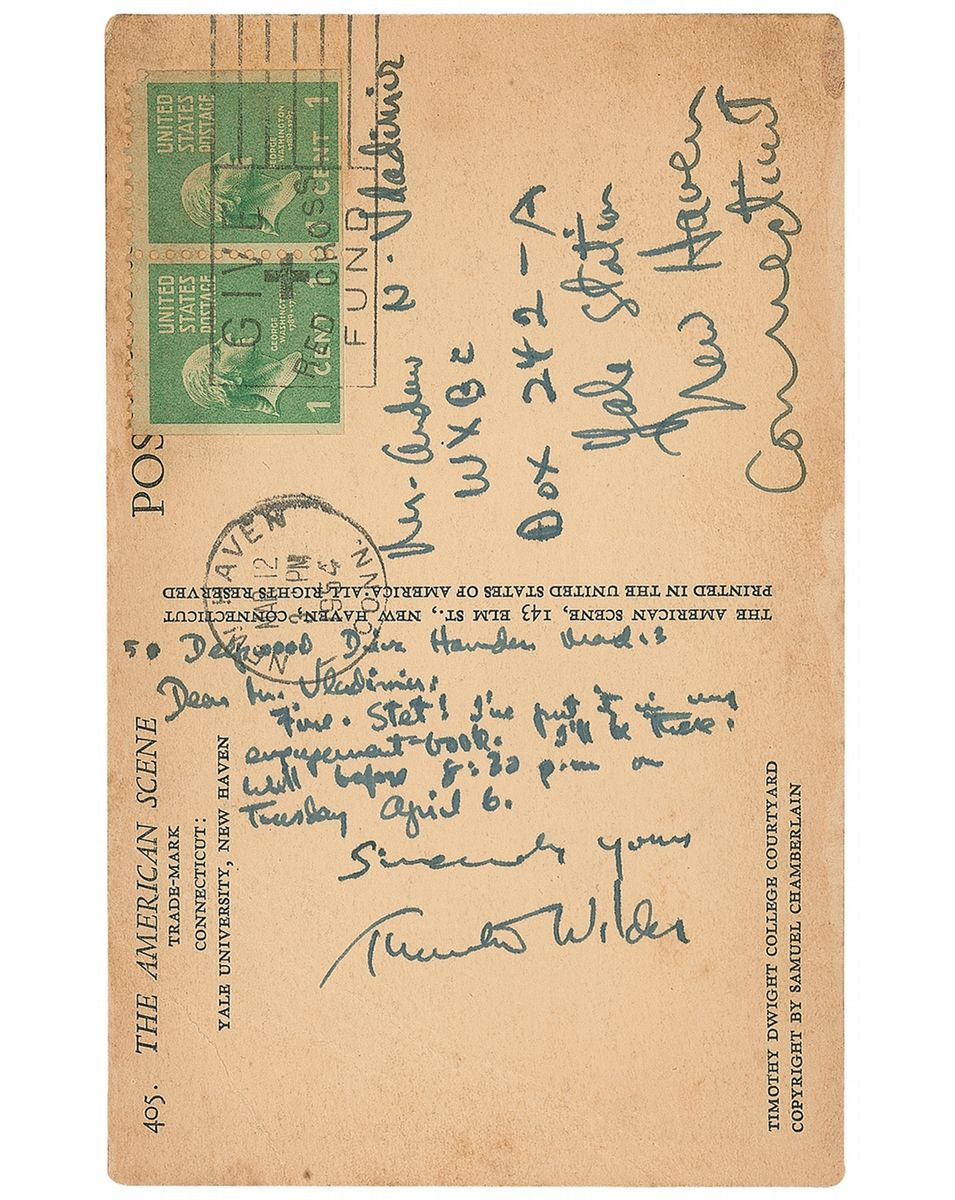 405. THE AMERICAN SCENE
TRADE-MARK
CONNECTICUT:
YALE UNIVERSITY, NEW HAVEN
POS
50 Deepwood Drive Hamden
Dear Mr. Vladimir:
Fine. Stet! I've put it in my
engagement-book. I'll be there.
Well before 8:30 p.m on
Tuesday April 6.
Sincerely yours
Thornton Wilder
TIMOTHY DWIGHT COLLEGE COURTYARD
COPYRIGHT BY SAMUEL CHAMBERLAIN
THE AMERICAN SCENE, 143 ELM ST., NEW HAVEN, CONNECTICUT
PRINTED IN THE UNITED STATES OF AMERICA: ALL RIGHTS RESERVED
NEW HAVEN
MAR 12
PM
1954
CONN.
UNITED
STATES
POSTAGE
GEORGE
WASHINGTON
1789-1797
1 CENT 1
UNITED
STATES
POSTAGE
GEORGE
WASHINGTON
1789-1797
1 CENT 1
GIVE
RED CROSS
FUND
Mr. Andrew N. Vladimir
WXBC
Box 242-A
Yale Station
New Haven
Connecticut